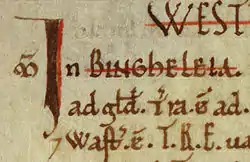 WEST
ꝏ In BINGHELEIA.
ad gld̄. Tr̄a. ē ad.
⁊ Wast᷒. ē. T. R. E. ua